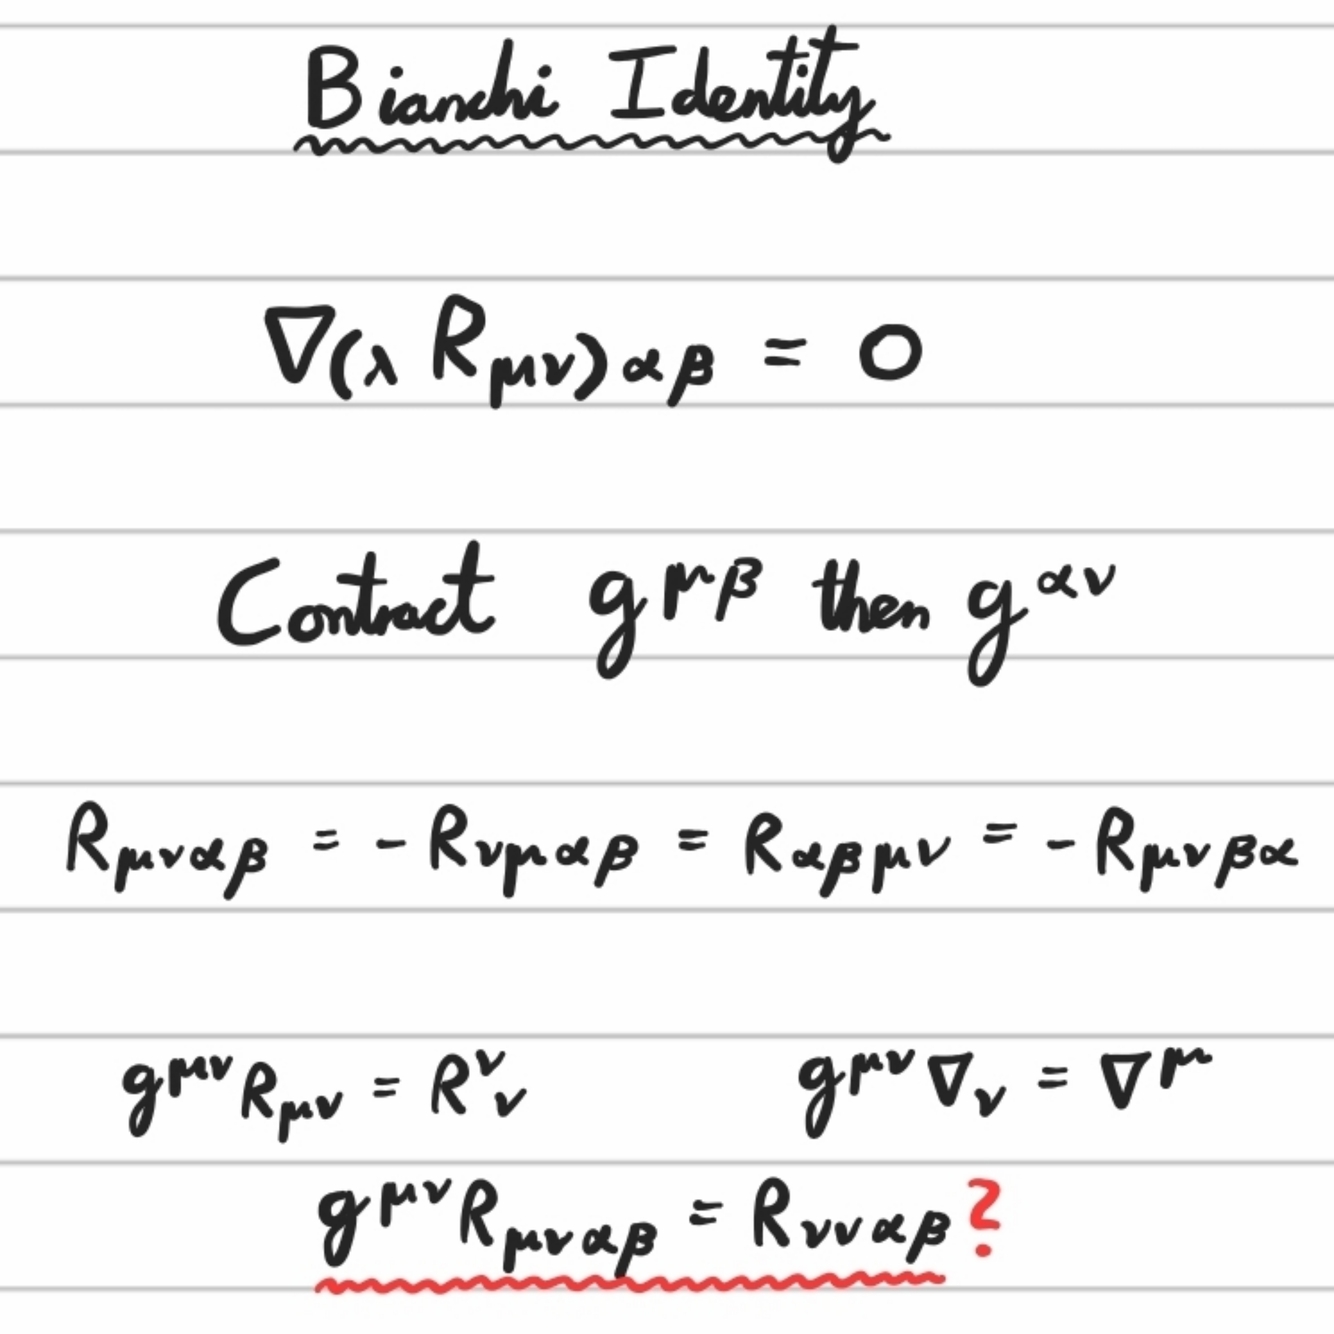 Bianchi Identity
∇₍λ R_μν₎αβ = 0
Contract g^μβ then g^αν
R_μναβ = - R_νμαβ = R_αβμν = - R_μνβα
g^μν R_μν = R^ν_ν g^μν ∇_ν = ∇^μ
g^μν R_μναβ = R_νναβ ?